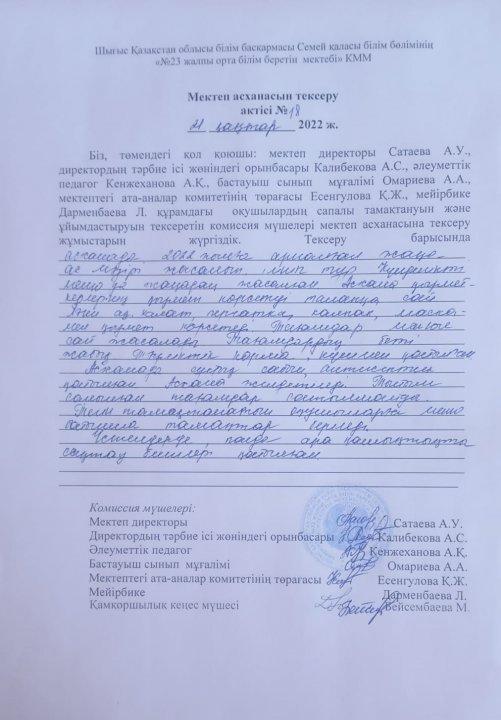 Шығыс Қазақстан облысы білім басқармасы Семей қаласы білім бөлімінің
«№23 жалпы орта білім беретін мектебі» КММ
Мектеп асханасын тексеру
актісі №18
21 қаңтар 2022 ж.
Біз, төмендегі қол қоюшы: мектеп директоры Сатаева А.У.,
директордың тәрбие ісі жөніндегі орынбасары Калибекова А.С., әлеуметтік
педагог Кенжеханова А.Қ., бастауыш сынып мұғалімі Омариева А.А.,
мектептегі ата-аналар комитетінің төрағасы Есенгулова Қ.Ж., мейірбике
Дарменбаева Л. құрамдағы оқушылардың сапалы тамақтануын және
ұйымдастыруын тексеретін комиссия мүшелері мектеп асханасына тексеру
жұмыстарын жүргіздік. Тексеру барысында
асханада 2022 жылға арналған жаңа
ас мәзірі жасалып, күнделікті
меню де жасалған Асхана қызмет-
керлерінің талапқа сай
ақ халат, перчатка, калпак, маска-
мен қызмет көрсетеді. Тағамдар
сай жасалады Тағамдардың беті
жабық
Асханада сұйық сабын, антисептик
қойылған Асхана желдетіледі. Тыйым
салынған тағамдар сатылмайды.
Тегін тамақтанатын оқушыларға меню
бойынша тамақтар берілді.
ара қашықтықты
сақтау
Комиссия мүшелері:
Мектеп директоры Сатаева А.У.
Директордың тәрбие ісі жөніндегі орынбасары Калибекова А.С.
Әлеуметтік педагог Кенжеханова А.Қ.
Бастауыш сынып мұғалімі Омариева А.А.
Мектептегі ата-аналар комитетінің төрағасы Есенгулова Қ.Ж.
Мейірбике Дарменбаева Л.
Қамқоршылық кеңес мүшесі Бейсембаева М.